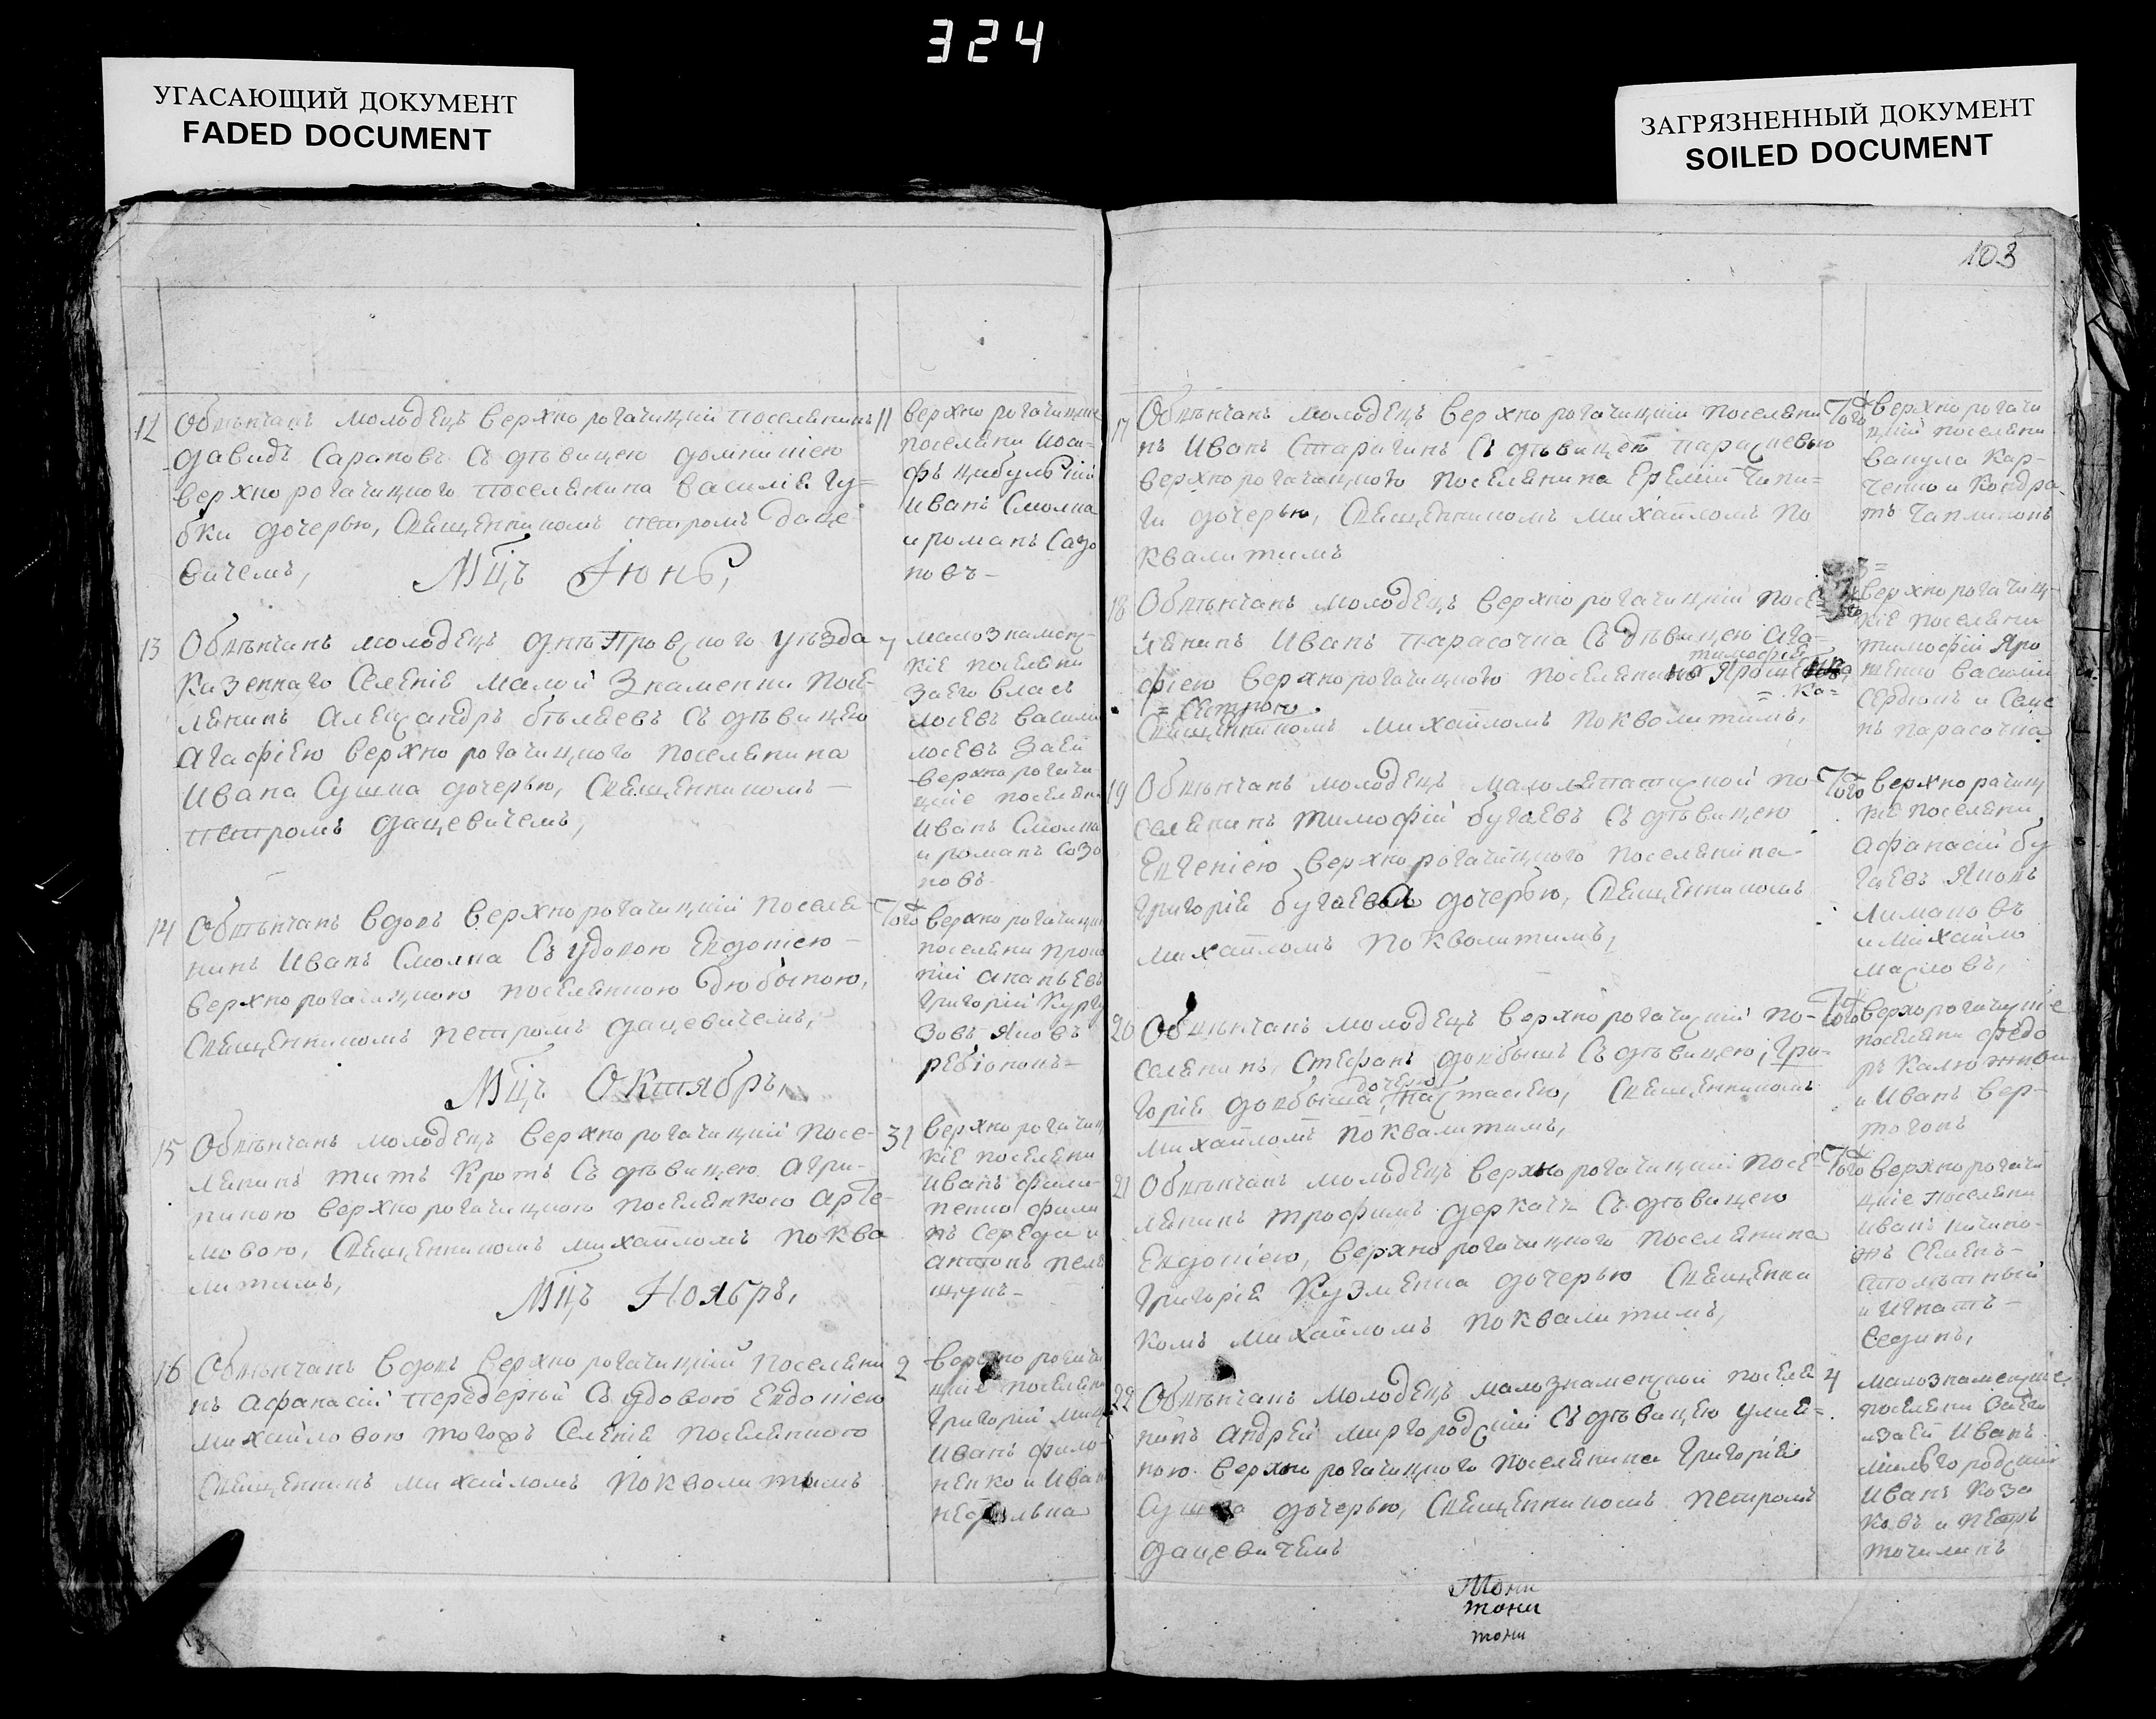 324
УГАСАЮЩИЙ ДОКУМЕНТ
FADED DOCUMENT
ЗАГРЯЗНЕННЫЙ ДОКУМЕНТ
SOILED DOCUMENT
103
12 Обвѣнчанъ молодецъ верхнорогачицкій поселянинъ 11
давидъ Сараповъ Съ дѣвицею домникіею
верхнорогачицкого поселянина василія гу=
бки дочерью, Священникомъ петромъ даце
вичемъ,
верхнорогачицкие
поселяни иоси-
фъ цибульскій
иванъ Смолка
и романъ Сазо
новъ-
Мцъ Іюнь,
13 Обвѣнчанъ молодецъ днѣпровского уѣзда 7
Казенного Селенія малой Знаменки посе-
лянинъ александръ бѣляевъ Съ дѣвицею
агафіею верхнорогачицкого поселянина
ивана Сушка дочерью, Священникомъ
петромъ дацевичемъ,
малознаменс-
кіе поселяни
Заего власъ
лосевъ василий
лосевъ Заей
верхнорогачи-
цкіе поселяни
иванъ Смолка
и романъ Созо
новъ
14 Обвѣнчанъ вдовъ верхнорогачицкій поселя- Тогож
нинъ иванъ Смолка Съ удовою Евдокіею
верхнорогачицкою поселянкою
Священникомъ петромъ дацевичемъ,
верхнорогачицкие
поселяни проко
пій ананьевъ
григорій
Зовъ яковъ
ребіонокъ-
Мцъ Октябръ,
15 Обвѣнчанъ молодецъ верхнорогачицкій посе- 31
лянинъ титъ Кротъ Съ дѣвицею агри-
пиною верхнорогачицкою поселянкою арте-
мовою, Священникомъ михаиломъ поква
литимъ,
верхнорогачиц
кіе поселяни
иванъ фили-
пенко фили
пъ Середа и
антонъ
Мцъ Ноябръ,
16 Обвѣнчанъ вдовъ верхнорогачицкій поселяни 2
нъ афанасій передерий Съ удовою Евдокіею
михайловою тогожъ Селенія поселянкою
Священникъ михаиломъ поквалитимъ
верхнорогачи
цкіе поселяни
григорій
иванъ фило
ненко и иван
17 Обвѣнчанъ молодецъ верхнорогачицкій поселяни Тогож
нъ иванъ Старичинъ Съ дѣвицею параскевью
верхнорогачицкого поселянина Еремій Чепи-
ги дочерью, Священникомъ михаиломъ по
квалитимъ
верхнорогачи
цкій поселяни
вакула Кар-
ченко и Кондра
тъ Чапликовъ
18 Обвѣнчанъ молодецъ верхнорогачицкій посе-
лянинъ иванъ парасочка Съ дѣвицею ага-
тимофія
фіею верхнорогачицкого поселянина Ярошенка
= Сестрою. = ка=
Священникомъ михаиломъ поквалитимъ,
верхнорогачиц-
кіе поселяни
тимофій Яро
шенко василій
Сердюкъ и Семе
нъ парасочка
19 Обвѣнчанъ молодецъ по- Тогож
селянинъ тимофій бугаевъ Съ дѣвицею
Евгеніею верхнорогачицкого поселянина
григорія бугаева дочерью, Священникомъ
михаиломъ поквалитимъ,
верхнорачиц
кіе поселяни
афанасій бу
гаевъ яковъ
лимановъ
и михайло
масловъ,
20 Обвѣнчанъ молодецъ верхнорогачицкій по- Тогож
селянинъ, Стефанъ довбышъ Съ дѣвицею, гри-
дочерю
горія довбыша, настасіею, Священникомъ
михаиломъ поквалитимъ,
верхорогачицкіе
поселяни федо
ръ Калюжный
и иванъ вер-
тогонъ
21 Обвѣнчанъ молодецъ верхнорогачицкій посе- Тогож
лянинъ трофимъ деркачъ Съ дѣвицею
Евдокіею, верхнорогачицкого поселянина
григорія Кузменка дочерью Священни
комъ михаиломъ поквалитимъ,
верхнорогачи
цкіе поселяни
иванъ
Семенъ
Столѣтный
и игнатъ
Сединъ,
22 Обвѣнчанъ молодецъ малознаменской поселя 4
нинъ андрей миргородскій Съ дѣвицею улия-
ною верхнорогачицкого поселянина григорія
Сушка дочерью, Священникомъ петромъ
дацевичемъ
малознаменские
поселяни Заего
изаей иванъ
миргородский
иванъ Коза
ковъ и петръ
точилинъ